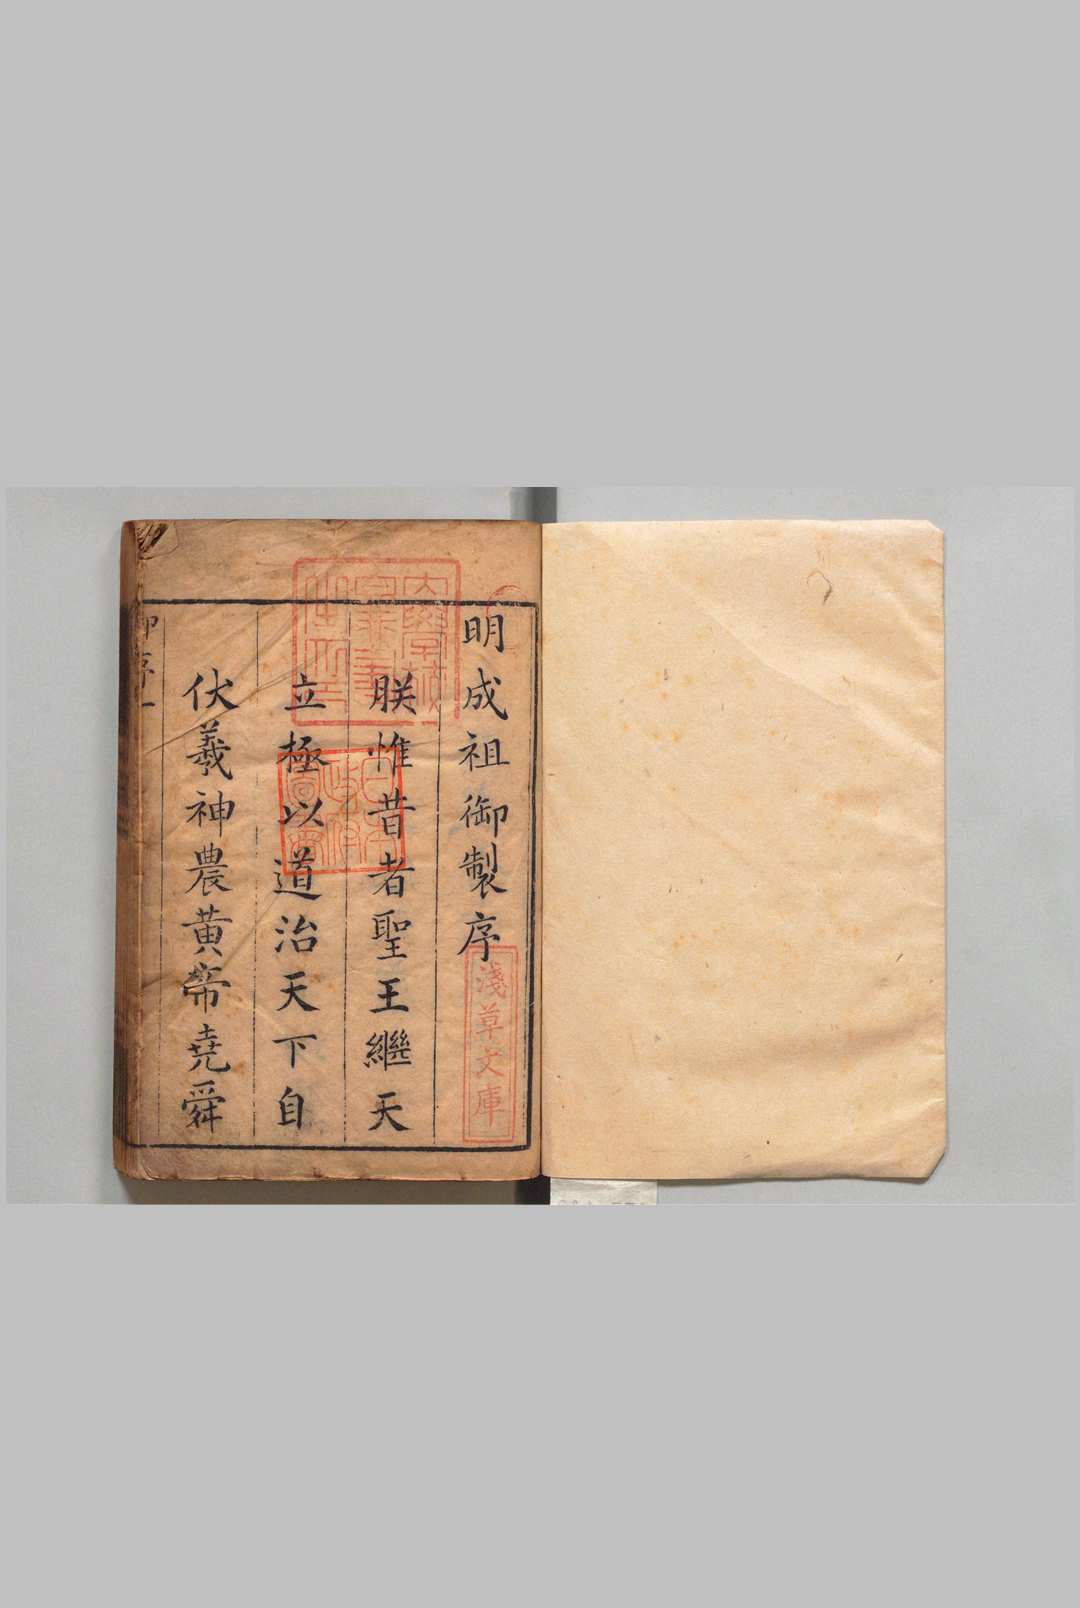 明成祖御製序
朕惟昔者聖王繼天
立極以道治天下自
伏羲神農黃帝堯舜
御序一
淺草文庫
日本
政府
圖書